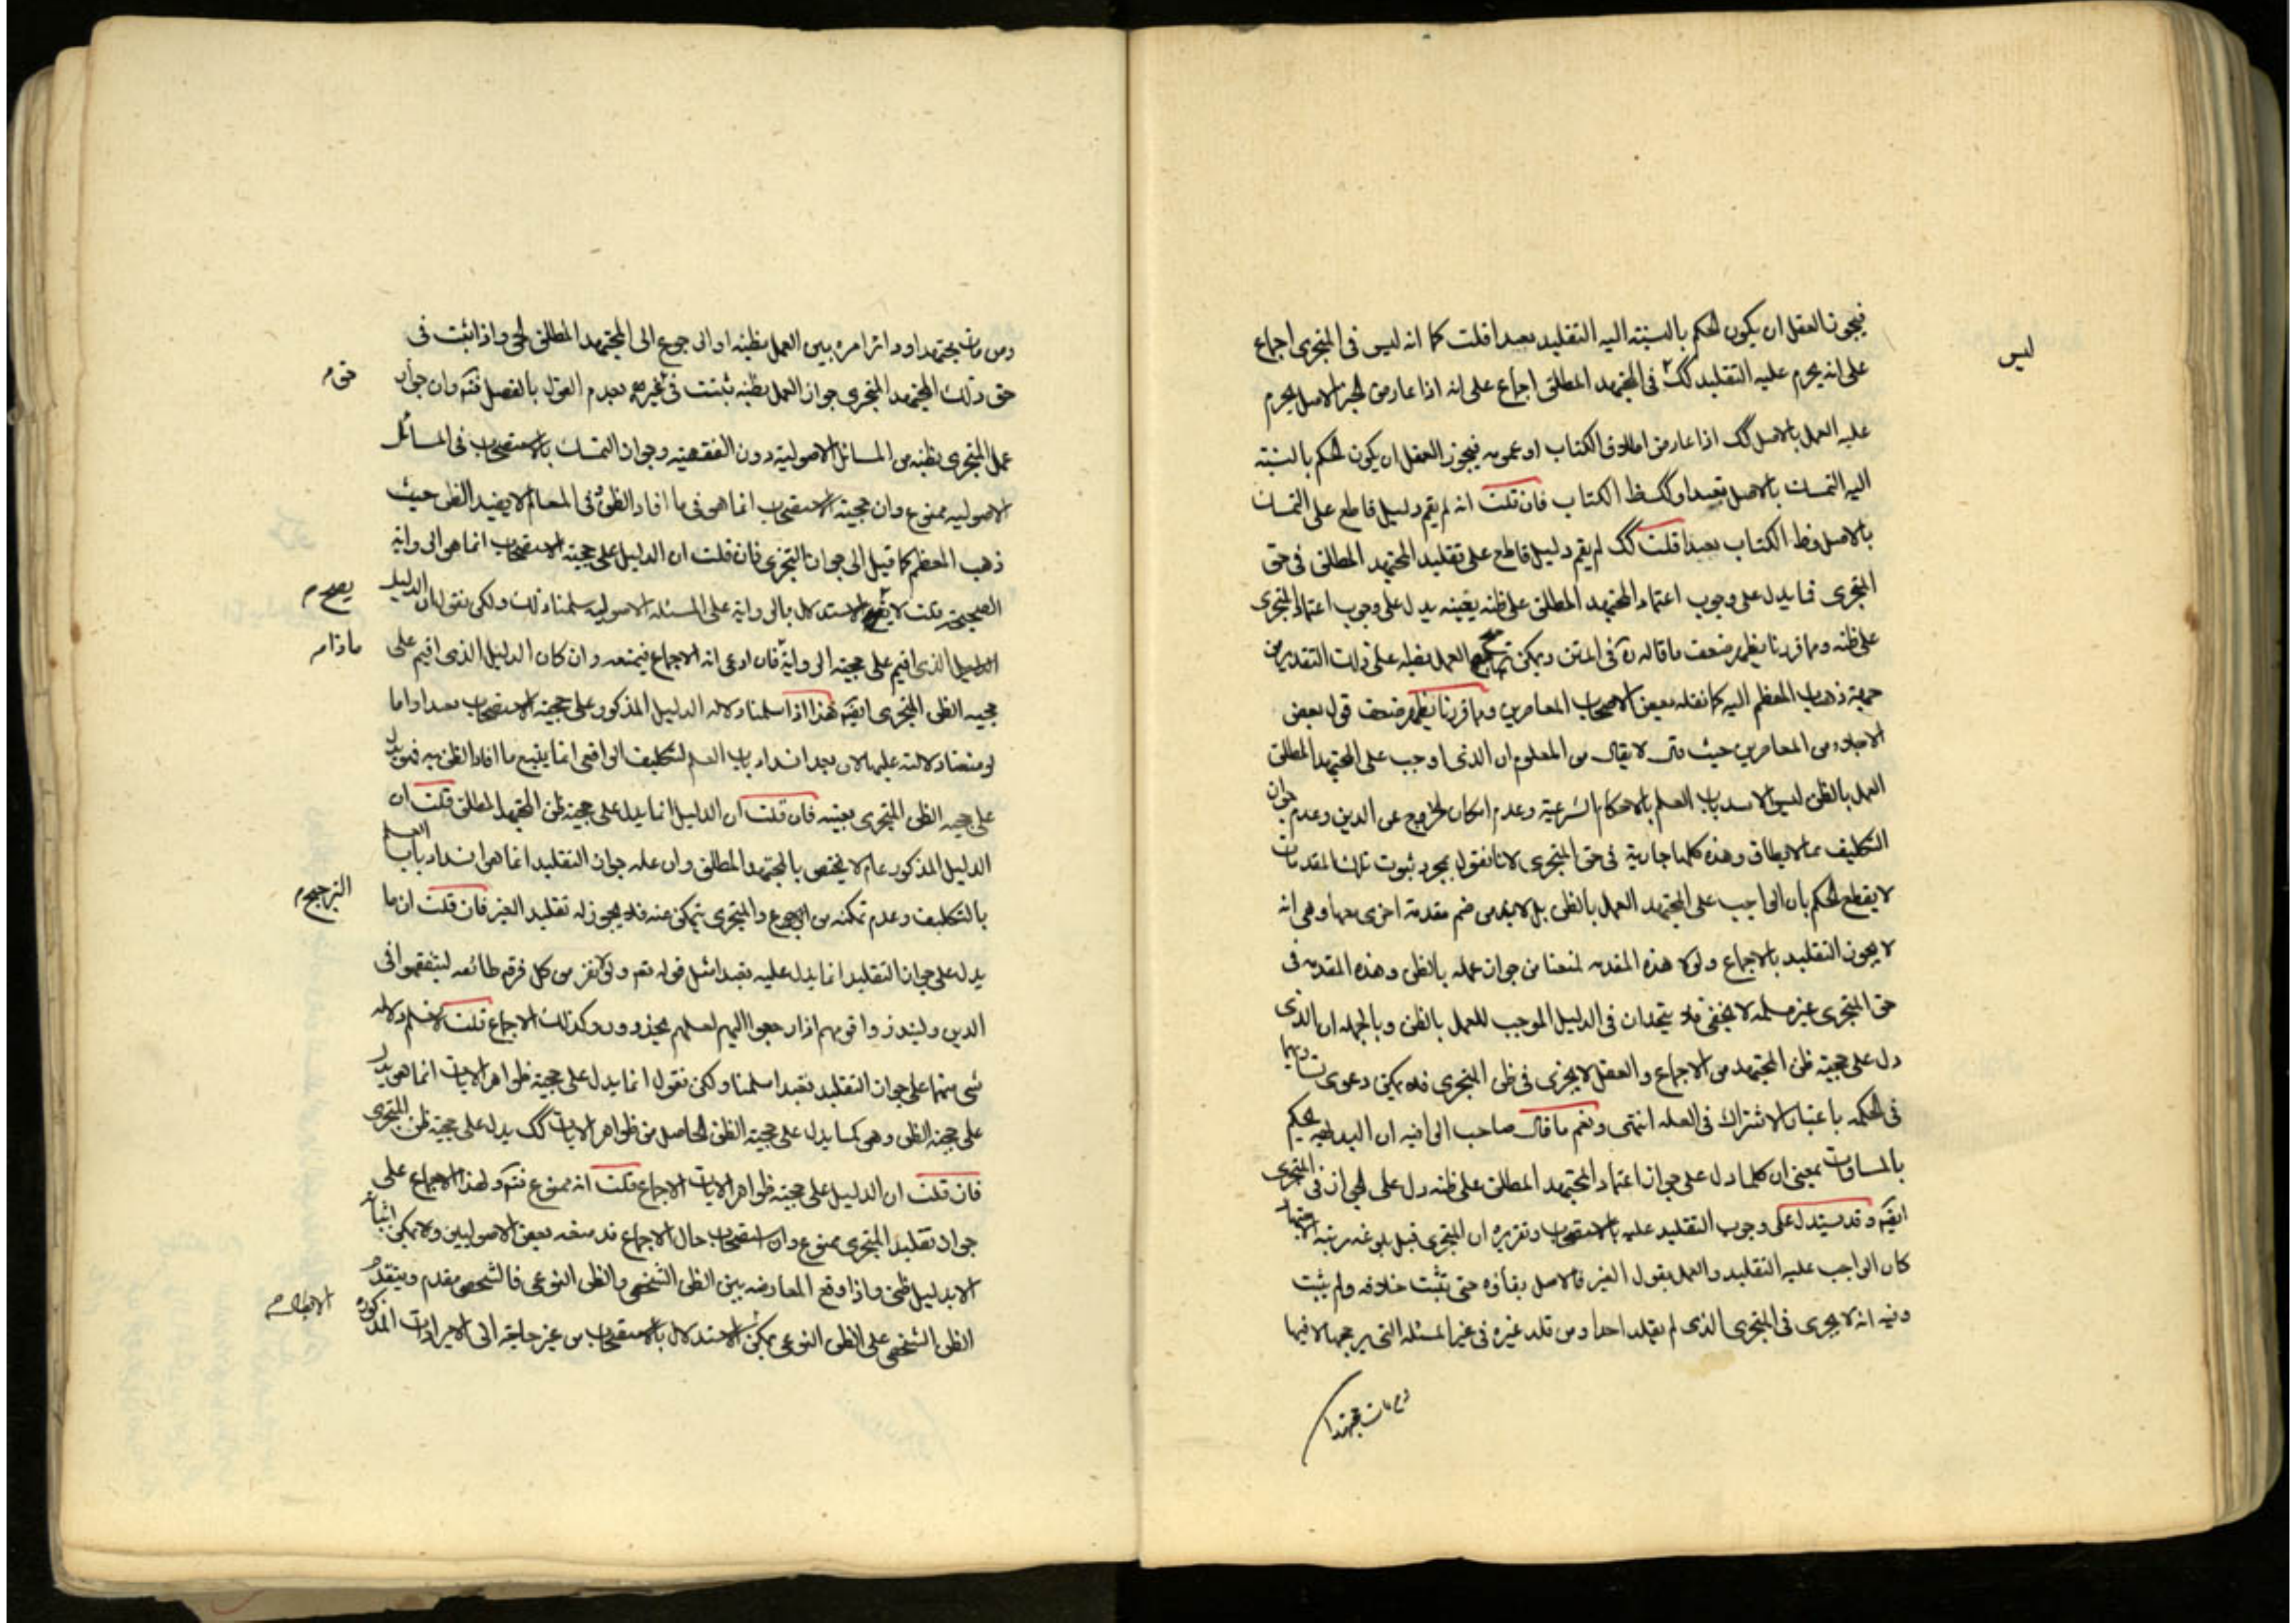 فيجوز العقل ان يكون الحكم بالنسبته اليه التقليد بعدا قلت كما انه ليس فى المتجرى اجماع
ليس
على انه يحرم عليه التقليد كك فى المجتهد المطلق اجماع على انه اذا عارض الخبر الاصل يحرم
عليه العمل بالاصل كك اذا عارض اطلاق الكتاب او عمومه فيجوز العقل ان يكون الحكم بالنسبته
اليه التمسك بالاصل تعبدا وكك ظ الكتاب فان قلت انه لم يقم دليل قاطع على التمسك
بالاصل وظ الكتاب تعبدا قلت كك لم يقم دليل قاطع على تقليد المجتهد المطلق فى حق
المتجرى فما يدل على وجوب اعتماد المجتهد المطلق على ظنه بعينه يدل على وجوب اعتماد المتجرى
على ظنه وما قررنا يظهر ضعف ما قاله ره فى المتن ويمكن العمل بظنه على ذلك التقدير من
جهة ذهاب المعظم اليه كما نقله بعض الاصحاب المعاصرين وما قررنا يظهر ضعف قول بعض
الاجلاء من المعاصرين حيث قال لا يقال من المعلوم ان الذى اوجب على المجتهد المطلق
العمل بالظن ليس الا سد باب العلم بالاحكام الشرعية وعدم امكان الخروج عن الدين وعدم جواز
التكليف بما لا يطاق وهذه كلها جارية فى حق المتجرى لانا نقول بمجرد ثبوت تلك المقدمات
لا يقطع الحكم بان الواجب على المجتهد العمل بالظن بل لا بد من ضم مقدمة اخرى معها وهى انه
لا يجوز التقليد بالاجماع ولولا هذه المقدمه لمنعنا من جواز عمله بالظن وهذه المقدمه فى
حق المتجرى غير مسلمه لا يخفى فلا يتحدان فى الدليل الموجب للعمل بالظن وبالجمله ان الذى
دل على حجية ظن المجتهد من الاجماع والعقل لا يجرى فى ظن المتجرى فلا يمكن دعوى تساويهما
فى الحكمه باعتبار الاشتراك فى العله انتهى ونعم ما قال صاحب الوافيه ان البديهه يحكم
بالمساوات بمعنى ان كلما دل على جواز اعتماد المجتهد المطلق على ظنه دل على الجواز فى المتجرى
ايضه وقد يستدل على وجوب التقليد عليه بالاستصحاب وتقريره ان المتجرى قبل بلوغه رتبة الاجتهاد
كان الواجب عليه التقليد والعمل بقول الغير فالاصل بقاؤه حتى تثبت خلافه ولم يثبت
وفيه انه لا يجرى فى المتجرى الذى لم يقلد احدا ومن قلد غيره فى غير المسئله التى يرجحها لا فيها
ومن مات مجتهدا
ومن مات مجتهدا ودائر امره بين العمل بظنه او الرجوع الى المجتهد المطلق الحى واذا ثبت فى
حق ذلك المجتهد المتجرى جواز العمل بظنه ثبتت فى غيره بعدم القول بالفصل فته وان جواز
عمل المتجرى بظنه من المسائل الاصوليه دون الفقهيه وجواز التمسك بالاستصحاب فى المسائل
الاصوليه ممنوع وان حجية الاستصحاب انما هو فى ما افاد الظن وفى المقام لا يفيد الظن حيث
ذهب المعظم كما قيل الى جواز التجزى فان قلت ان الدليل على حجية الاستصحاب انما هى الرواية
يصح م
الصحيحة قلت لا يصح الاستدلال بالرواية على المسئله الاصوليه سلمنا ذلك ولكن نقول ان الدليل
ماذام
الدليل الذى اقيم على حجية الرواية فان ادعى انه الاجماع فيمنعه وان كان الدليل الذى اقيم على
حجيه الظن المتجرى ايضه هذا اذا سلمنا دلاله الدليل المذكور على حجية الاستصحاب تعبدا واما
لو منعنا دلالته عليها لان بعد انسداد باب العلم لتكليف الواقعى انما يتبع ما افاد الظن به فهو يدل
على حجيه الظن المتجرى بعينه فان قلت ان الدليل انما يدل على حجية ظن المجتهد المطلق قلت ان
الدليل المذكور عام لا يختص بالمجتهد المطلق وان عله جواز التقليد انما هو انسداد باب العلم
الترجيح م
بالتكليف وعدم تمكنه من الرجوع والمتجرى يتمكن عنه فلا يجوز له تقليد الغير فان قلت ان ما
يدل على جواز التقليد انما يدل عليه تعبدا مثل قوله تعم ولولا نفر من كل فرقه طائفه ليتفقهوا فى
الدين ولينذروا قومهم اذا رجعوا اليهم لعلهم يحذرون وكذلك الاجماع قلت لا نسلم دلاله
شى منهما على جواز التقليد تعبدا سلمنا ولكن نقول انما يدل على حجية ظواهر الايات انما هو يدل
على حجيه الظن وهى كما يدل على حجية الظن الحاصل من ظواهر الايات كك يدل على حجية ظن المتجرى
فان قلت ان الدليل على حجية ظواهر الايات الاجماع قلت انه ممنوع فته ولهذا الاجماع على
جواز تقليد المتجرى ممنوع وان استصحاب حال الاجماع قد منعه بعض الاصوليين ولا يمكن اثباته
الا بدليل ظنى واذا وقع المعارضه بين الظن الشخصى والظن النوعى فالشخصى مقدم وبتقدم
الظن الشخصى على الظن النوعى يمكن الاستدلال بالاستصحاب من غير حاجة الى الايرادات المذكوره